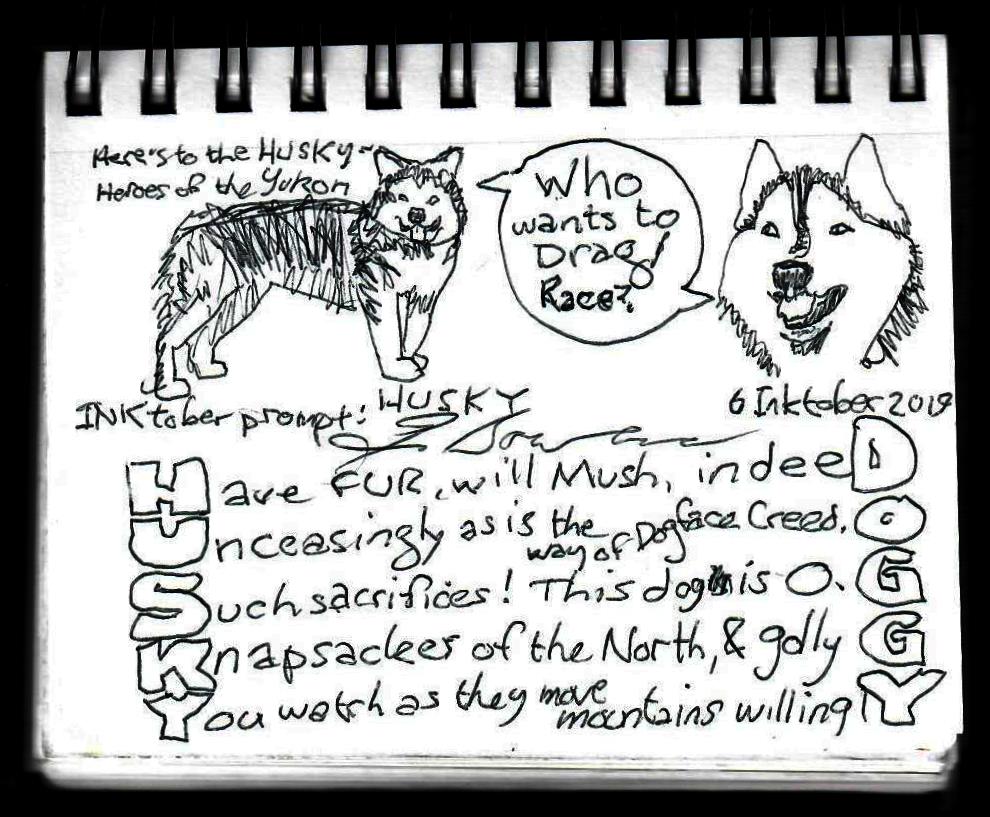 Here's to the HUSKY~
Heroes of the Yukon
Who
wants to
Drag
Race?
INKtober prompt: HUSKY
6 Inktober 2019
Have FUR, will Mush, indeeD
Unceasingly as is the way of Dogface Creed, O
Such sacrifices! This dog is O. G
Knapsackers of the North, & golly G
You watch as they move mountains willinglY